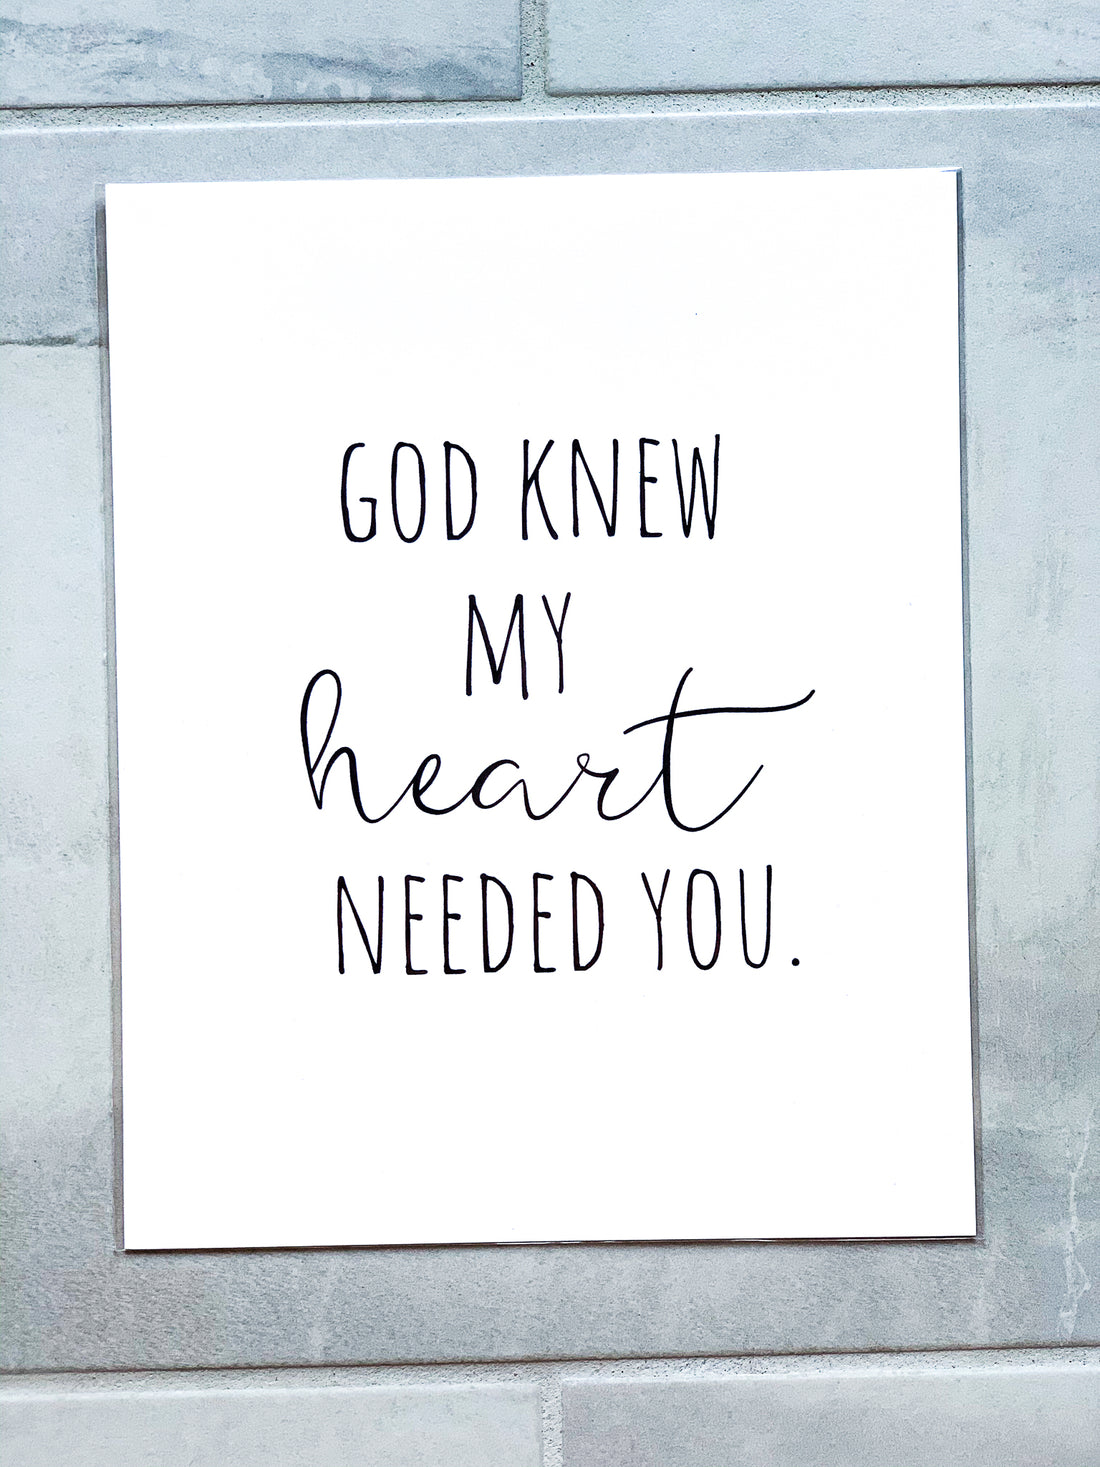 GOD KNEW
MY
heart
NEEDED YOU.